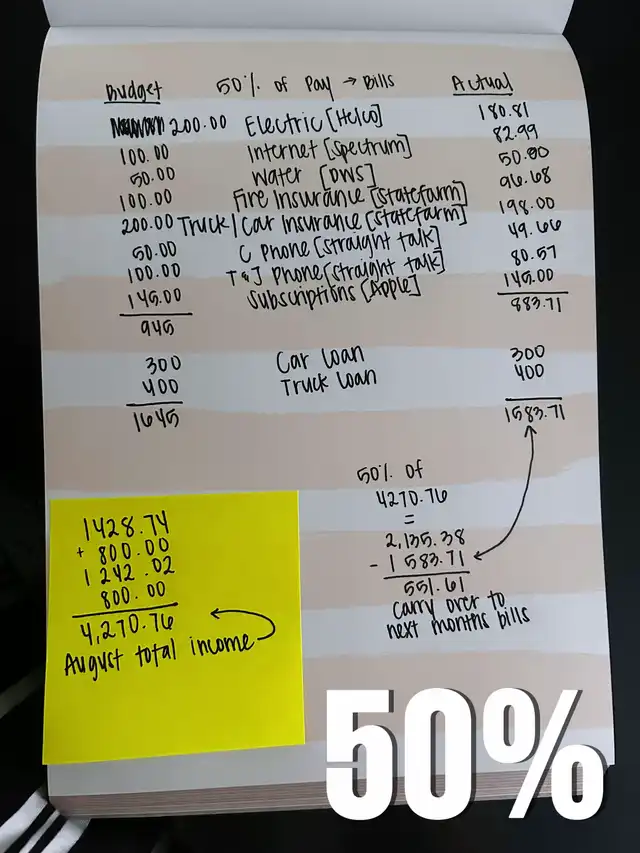 Budget 50% of Pay → Bills Actual
200.00 Electric [Helco] 180.81
100.00 Internet [spectrum] 82.99
50.00 Water [DWS] 50.00
100.00 Fire Insurance [statefarm] 96.68
200.00 Truck/Car Insurance [statefarm] 198.00
50.00 C Phone [straight talk] 49.66
100.00 T&J Phone [straight talk] 80.57
145.00 Subscriptions [Apple] 145.00
945 883.71
300 Car Loan 300
400 Truck Loan 400
1645 1583.71
50% of
4270.76
=
2,135.38
- 1583.71
551.61
carry over to
next months bills
1428.74
+ 800.00
1242.02
800.00
4,270.76
August total income
50%